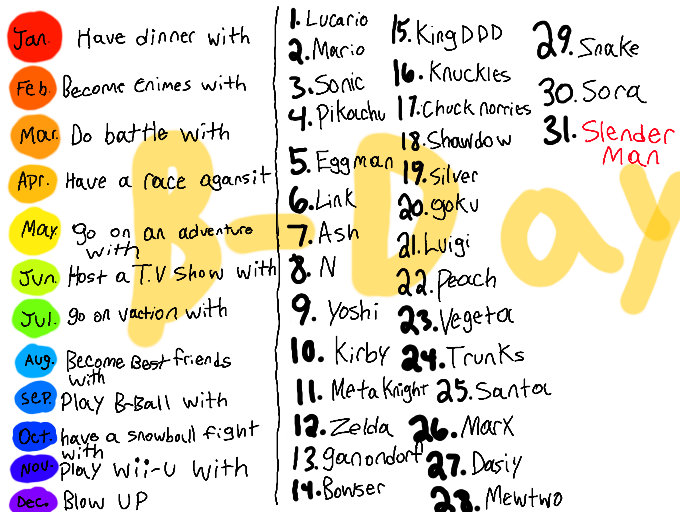 B-Day
Jan. Have dinner with
Feb. Become Enimes with
Mar. Do battle with
Apr. Have a race agansit
May go on an adventure
with
Jun. Host a T.V Show with
Jul. go on vaction with
Aug. Become Best friends
with
Sep. Play B-Ball with
Oct. have a snowball fight
with
Nov. Play wii-u with
Dec. Blow UP
1. Lucario
2. Mario
3. Sonic
4. Pikachu
5. Eggman
6. Link
7. Ash
8. N
9. Yoshi
10. Kirby
11. Meta Knight
12. Zelda
13. ganondorf
14. Bowser
15. King DDD
16. Knuckles
17. Chuck norries
18. Shawdow
19. Silver
20. goku
21. Luigi
22. Peach
23. Vegeta
24. Trunks
25. Santa
26. Marx
27. Dasiy
28. Mewtwo
29. Snake
30. Sora
31. Slender
Man